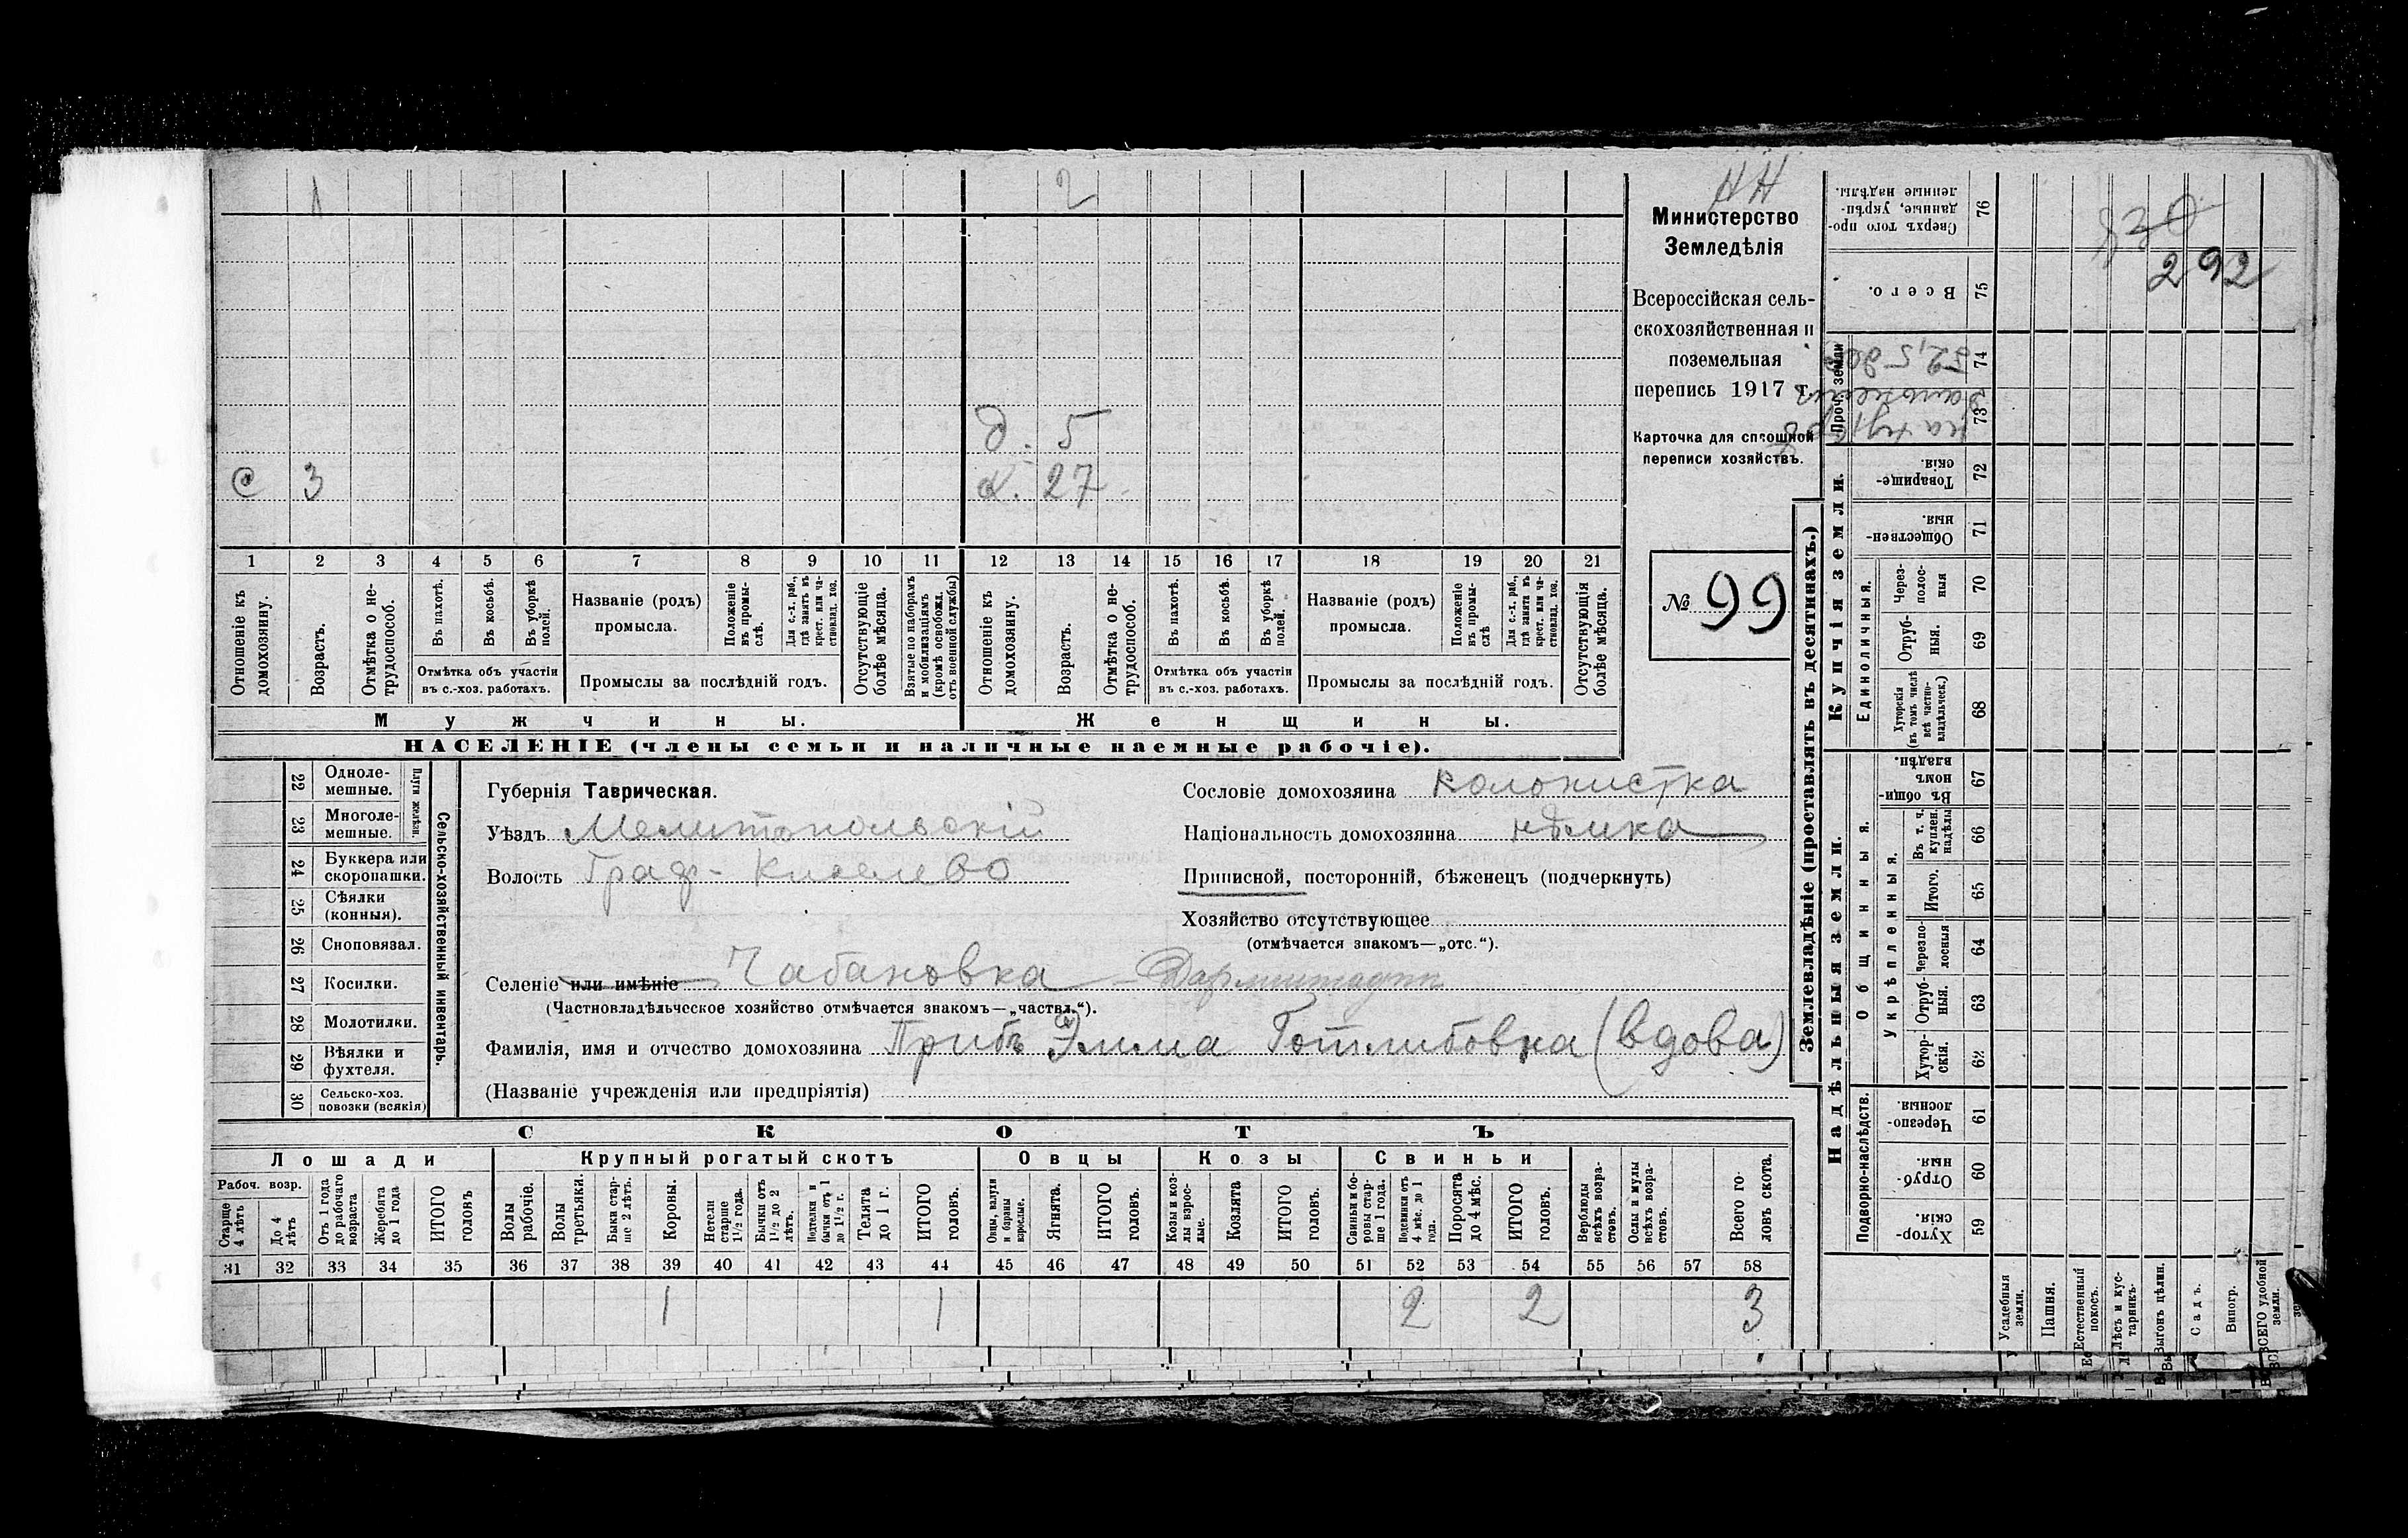 1
2
д. 5
с 3
х. 27
1 2 3 4 5 6 7 8 9 10 11 12 13 14 15 16 17 18 19 20 21
Отношеніе къ домохозяину.
Возрастъ.
Отмѣтка о не-трудоспособ.
Въ пахотѣ.
Въ косьбѣ.
Въ уборкѣ полей.
Отмѣтка объ участіи въ с.-хоз. работахъ.
Названіе (родъ) промысла.
Положеніе въ промы-слѣ.
Для с.-х. раб., гдѣ занятъ въ крест. или ча-стновлад. хоз.
Промыслы за послѣдній годъ.
Отсутствующіе болѣе мѣсяца.
Взятые по наборамъ и мобилизаціямъ (кромѣ освобожд. отъ военной службы)
Отношеніе къ домохозяину.
Возрастъ.
Отмѣтка о не-трудоспособ.
Въ пахотѣ.
Въ косьбѣ.
Въ уборкѣ полей.
Отмѣтка объ участіи въ с.-хоз. работахъ.
Названіе (родъ) промысла.
Положеніе въ промы-слѣ
Для с.-х. раб., гдѣ занята въ крест. или ча-стновлад. хоз.
Промыслы за послѣдній годъ.
Отсутствующія болѣе мѣсяца.
Мужчины.
Женщины.
НАСЕЛЕНІЕ (члены семьи и наличные наемные рабочіе).
НН
Министерство
Земледѣлія
Всероссійская сель-
скохозяйственная и
поземельная
перепись 1917 г.
Карточка для сплошной
переписи хозяйствъ.
№ 99
22 Одноле-мешные.
23 Многоле-мешные.
Плуги желѣзн.
24 Буккера или скоропашки.
25 Сѣялки (конныя).
26 Сноповязал.
27 Косилки.
28 Молотилки.
29 Вѣялки и фухтеля.
30 Сельско-хоз. повозки (всякія)
Сельско-хозяйственный инвентарь.
Губернія Таврическая.
Уѣздъ Мелитопольскій
Волость Граф-Киселево
Сословіе домохозяина колонистка
Національность домохозяина нѣмка
Приписной, посторонній, бѣженецъ (подчеркнуть)
Хозяйство отсутствующее
(отмѣчается знакомъ—„отс.“).
Селеніе или имѣніе Чабановка - Дармштадтъ
(Частновладѣльческое хозяйство отмѣчается знакомъ—„частвл.“).
Фамилія, имя и отчество домохозяина Прибъ Эмма Готлибовна (вдова)
(Названіе учрежденія или предпріятія)
СКОТЪ
Лошади
Крупный рогатый скотъ
Овцы
Козы
Свиньи
Рабоч. возр.
Старше 4 лѣтъ
До 4 лѣтъ
Отъ 1 года до рабочаго возраста
Жеребята до 1 года
ИТОГО головъ
Волы рабочіе.
Волы третьяки.
Быки стар-ше 2 лѣтъ.
Коровы.
Нетели старше 1½ года.
Бычки отъ 1½ до 2 лѣтъ.
Подтелки и бычки отъ 1 до 1½ г.
Телята до 1 г.
ИТОГО головъ.
Овцы, валухи и бараны взрослые.
Ягнята.
ИТОГО головъ.
Козы и коз-лы взрос-лые.
Козлята
ИТОГО головъ.
Свиньи и бо-ровы стар-ше 1 года.
Подсвинки отъ 4 мѣс. до 1 года.
Поросята до 4 мѣс.
ИТОГО головъ.
Верблюды всѣхъ возра-стовъ.
Ослы и мулы всѣхъ возра-стовъ.
Всего го-ловъ скота.
31 32 33 34 35 36 37 38 39 40 41 42 43 44 45 46 47 48 49 50 51 52 53 54 55 56 57 58
1 1 2 2 3
Землевладѣніе (проставлять въ десятинахъ.)
Надѣльныя земли.
Купчія земли.
Проч. земли
Подворно-наслѣдств.
Общинныя.
Укрѣпленныя.
Единоличныя.
Сверхъ того про-данные, укрѣп-ленные надѣлы. 76
Всего. 75
74
73
52,5
Товарище-скія. 72
Обществен-ныя. 71
Через-полос-ныя 70
Отруб-ныя. 69
Хуторскія (въ томъ числѣ всѣ частно-владѣльческ.) 68
Въ общи-номъ владѣн. 67
Въ т. ч. куплен. надѣлы 66
Итого. 65
Черезпо-лосныя 64
Отруб-ныя. 63
Хутор-скія. 62
Черезпо-лосныя. 61
Отруб-ныя. 60
Хутор-скія. 59
Усадебныя земли.
Пашня.
Естественный покосъ.
Лѣсъ и кус-тарникъ.
Выгонъ цѣлин.
Садъ.
Виногр.
ВСЕГО удобной земли.
830
292